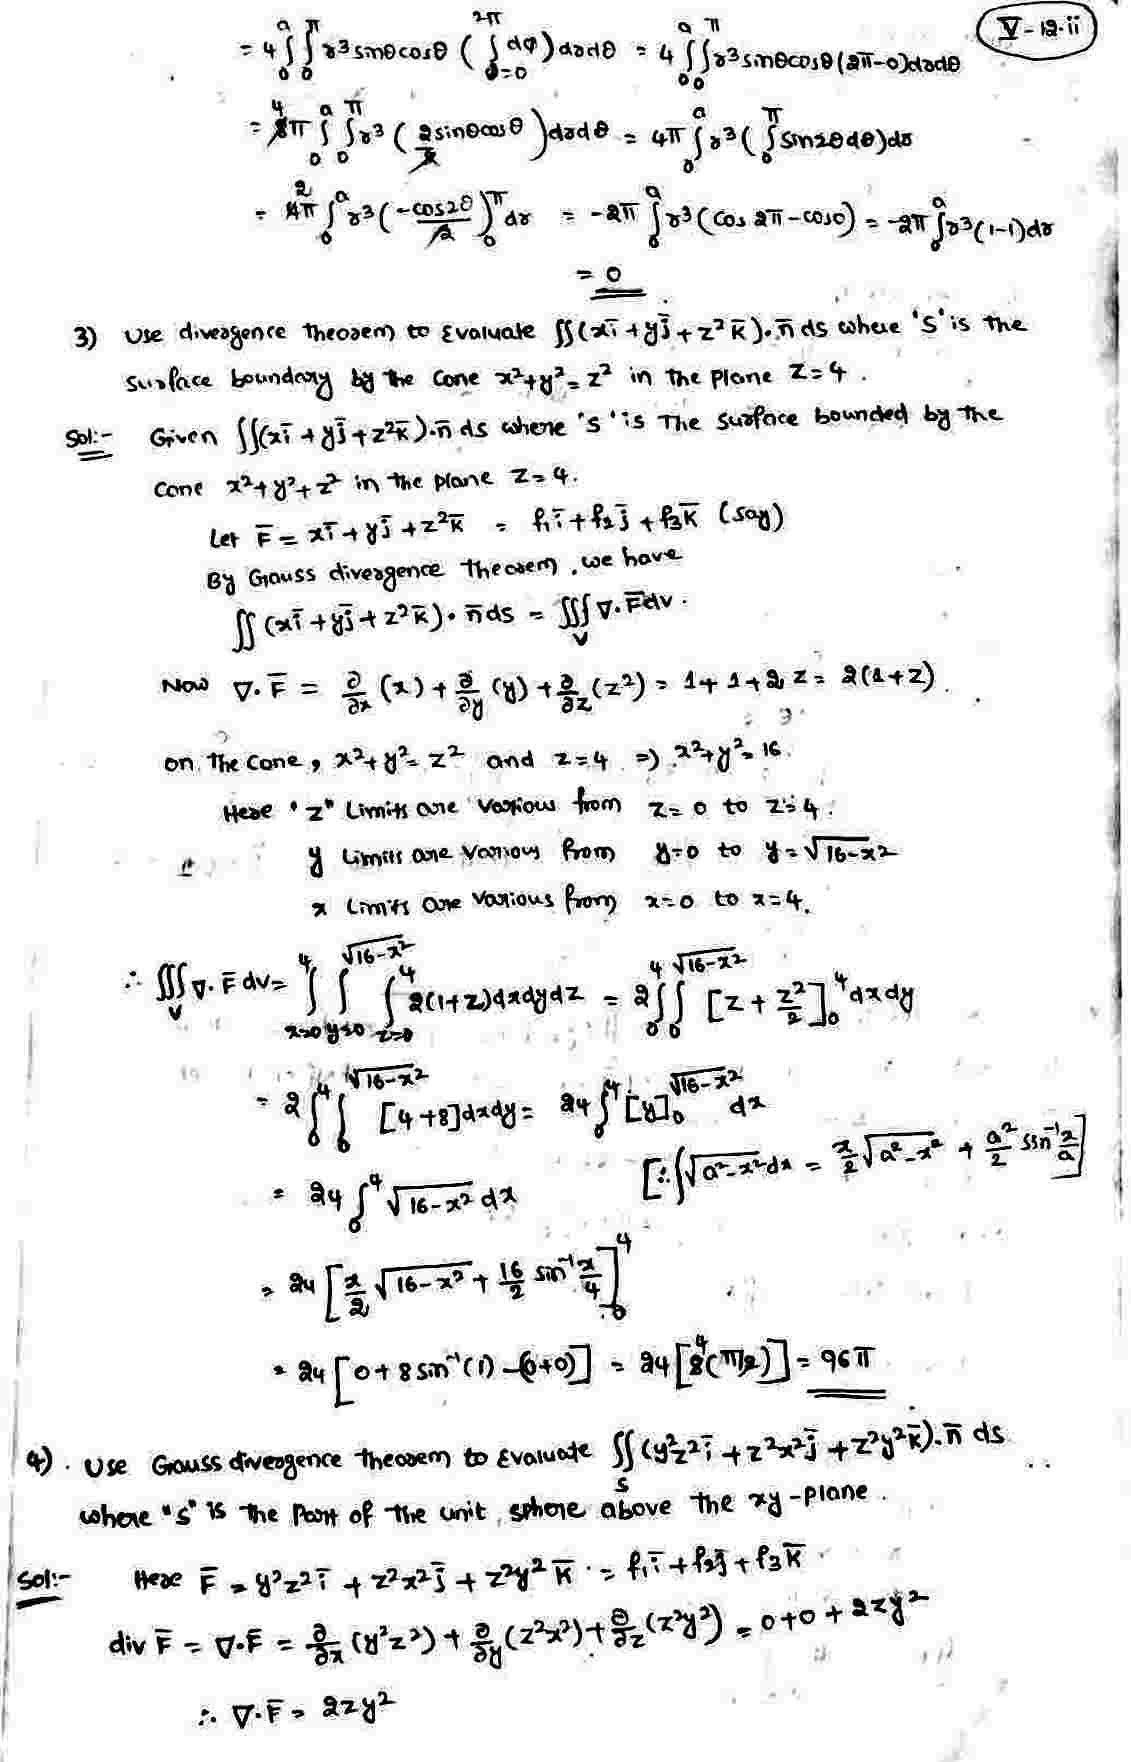 V-12.ii
= 4 ∫₀^a ∫₀^π r³ sinθcosθ ( ∫_{φ=0}^{2π} dφ ) drdθ = 4 ∫₀^a ∫₀^π r³ sinθcosθ (2π-0) drdθ
= 4π ∫₀^a ∫₀^π r³ ( 2sinθcosθ ) drdθ = 4π ∫₀^a r³ ( ∫₀^π sin2θdθ ) dr
= 2π ∫₀^a r³ ( -cos2θ )₀^π dr = -2π ∫₀^a r³ (cos 2π - cos0) = -2π ∫₀^a r³ (1-1) dr
= 0
3) Use divergence theorem to Evaluate ∬(xī + yj̄ + z² k̄). n̄ ds where 's' is the
surface boundary by the cone x²+y² = z² in the plane z=4.
Sol:- Given ∬(xī + yj̄ + z²k̄). n̄ ds where 's' is the surface bounded by the
cone x²+y²+z² in the plane z=4.
Let F̄ = xī + yj̄ + z²k̄ = f₁ī + f₂j̄ + f₃k̄ (say)
By Gauss divergence theorem, we have
∬ (xī + yj̄ + z²k̄). n̄ ds = ∭_V ∇. F̄dv.
Now ∇. F̄ = ∂/∂x (x) + ∂/∂y (y) + ∂/∂z (z²) = 1+1+2z = 2(1+z).
on the cone, x²+y² = z² and z=4 ⇒ x²+y² = 16.
Here "z" Limits are various from z=0 to z=4.
y Limits are various from y=0 to y=√16-x²
x Limits are various from x=0 to x=4.
∴ ∭_V ∇. F̄ dv = ∫_{x=0}^4 ∫_{y=0}^{√16-x²} ∫_{z=0}^4 2(1+z)dxdydz = 2 ∫₀^4 ∫₀^{√16-x²} [z + z²/2]₀^4 dxdy
= 2 ∫₀^4 ∫₀^{√16-x²} [4+8]dxdy = 24 ∫₀^4 [y]₀^{√16-x²} dx
= 24 ∫₀^4 √16-x² dx [∵ ∫√a²-x² dx = x/2 √a²-x² + a²/2 sin⁻¹ x/a]
= 24 [x/2 √16-x² + 16/2 sin⁻¹ x/4]₀^4
= 24 [0+8 sin⁻¹(1) -(0+0)] = 24 [8(π/2)] = 96π
4). Use Gauss divergence theorem to Evaluate ∬_S (y²z²ī + z²x²j̄ + z²y²k̄). n̄ ds.
where "s" is the part of the unit sphere above the xy-plane.
Sol:- Here F̄ = y²z²ī + z²x²j̄ + z²y² k̄ = f₁ī + f₂j̄ + f₃k̄
div F̄ = ∇.F̄ = ∂/∂x (y²z²) + ∂/∂y (z²x²) + ∂/∂z (z²y²) = 0+0+2zy²
∴ ∇.F̄ = 2zy²